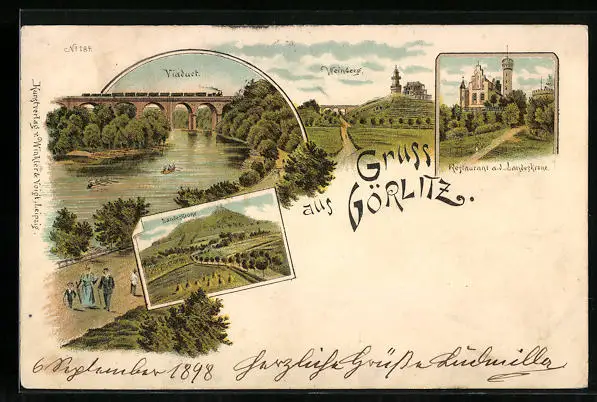 No 184.
Viaduct.
Weinberg.
Restaurant a.d. Landeskrone.
Gruss
aus GÖRLITZ.
Landeskrone
Kunstverlag v. Winkler & Voigt, Leipzig.
6 September 1898 Herzliche Grüße Ludmilla